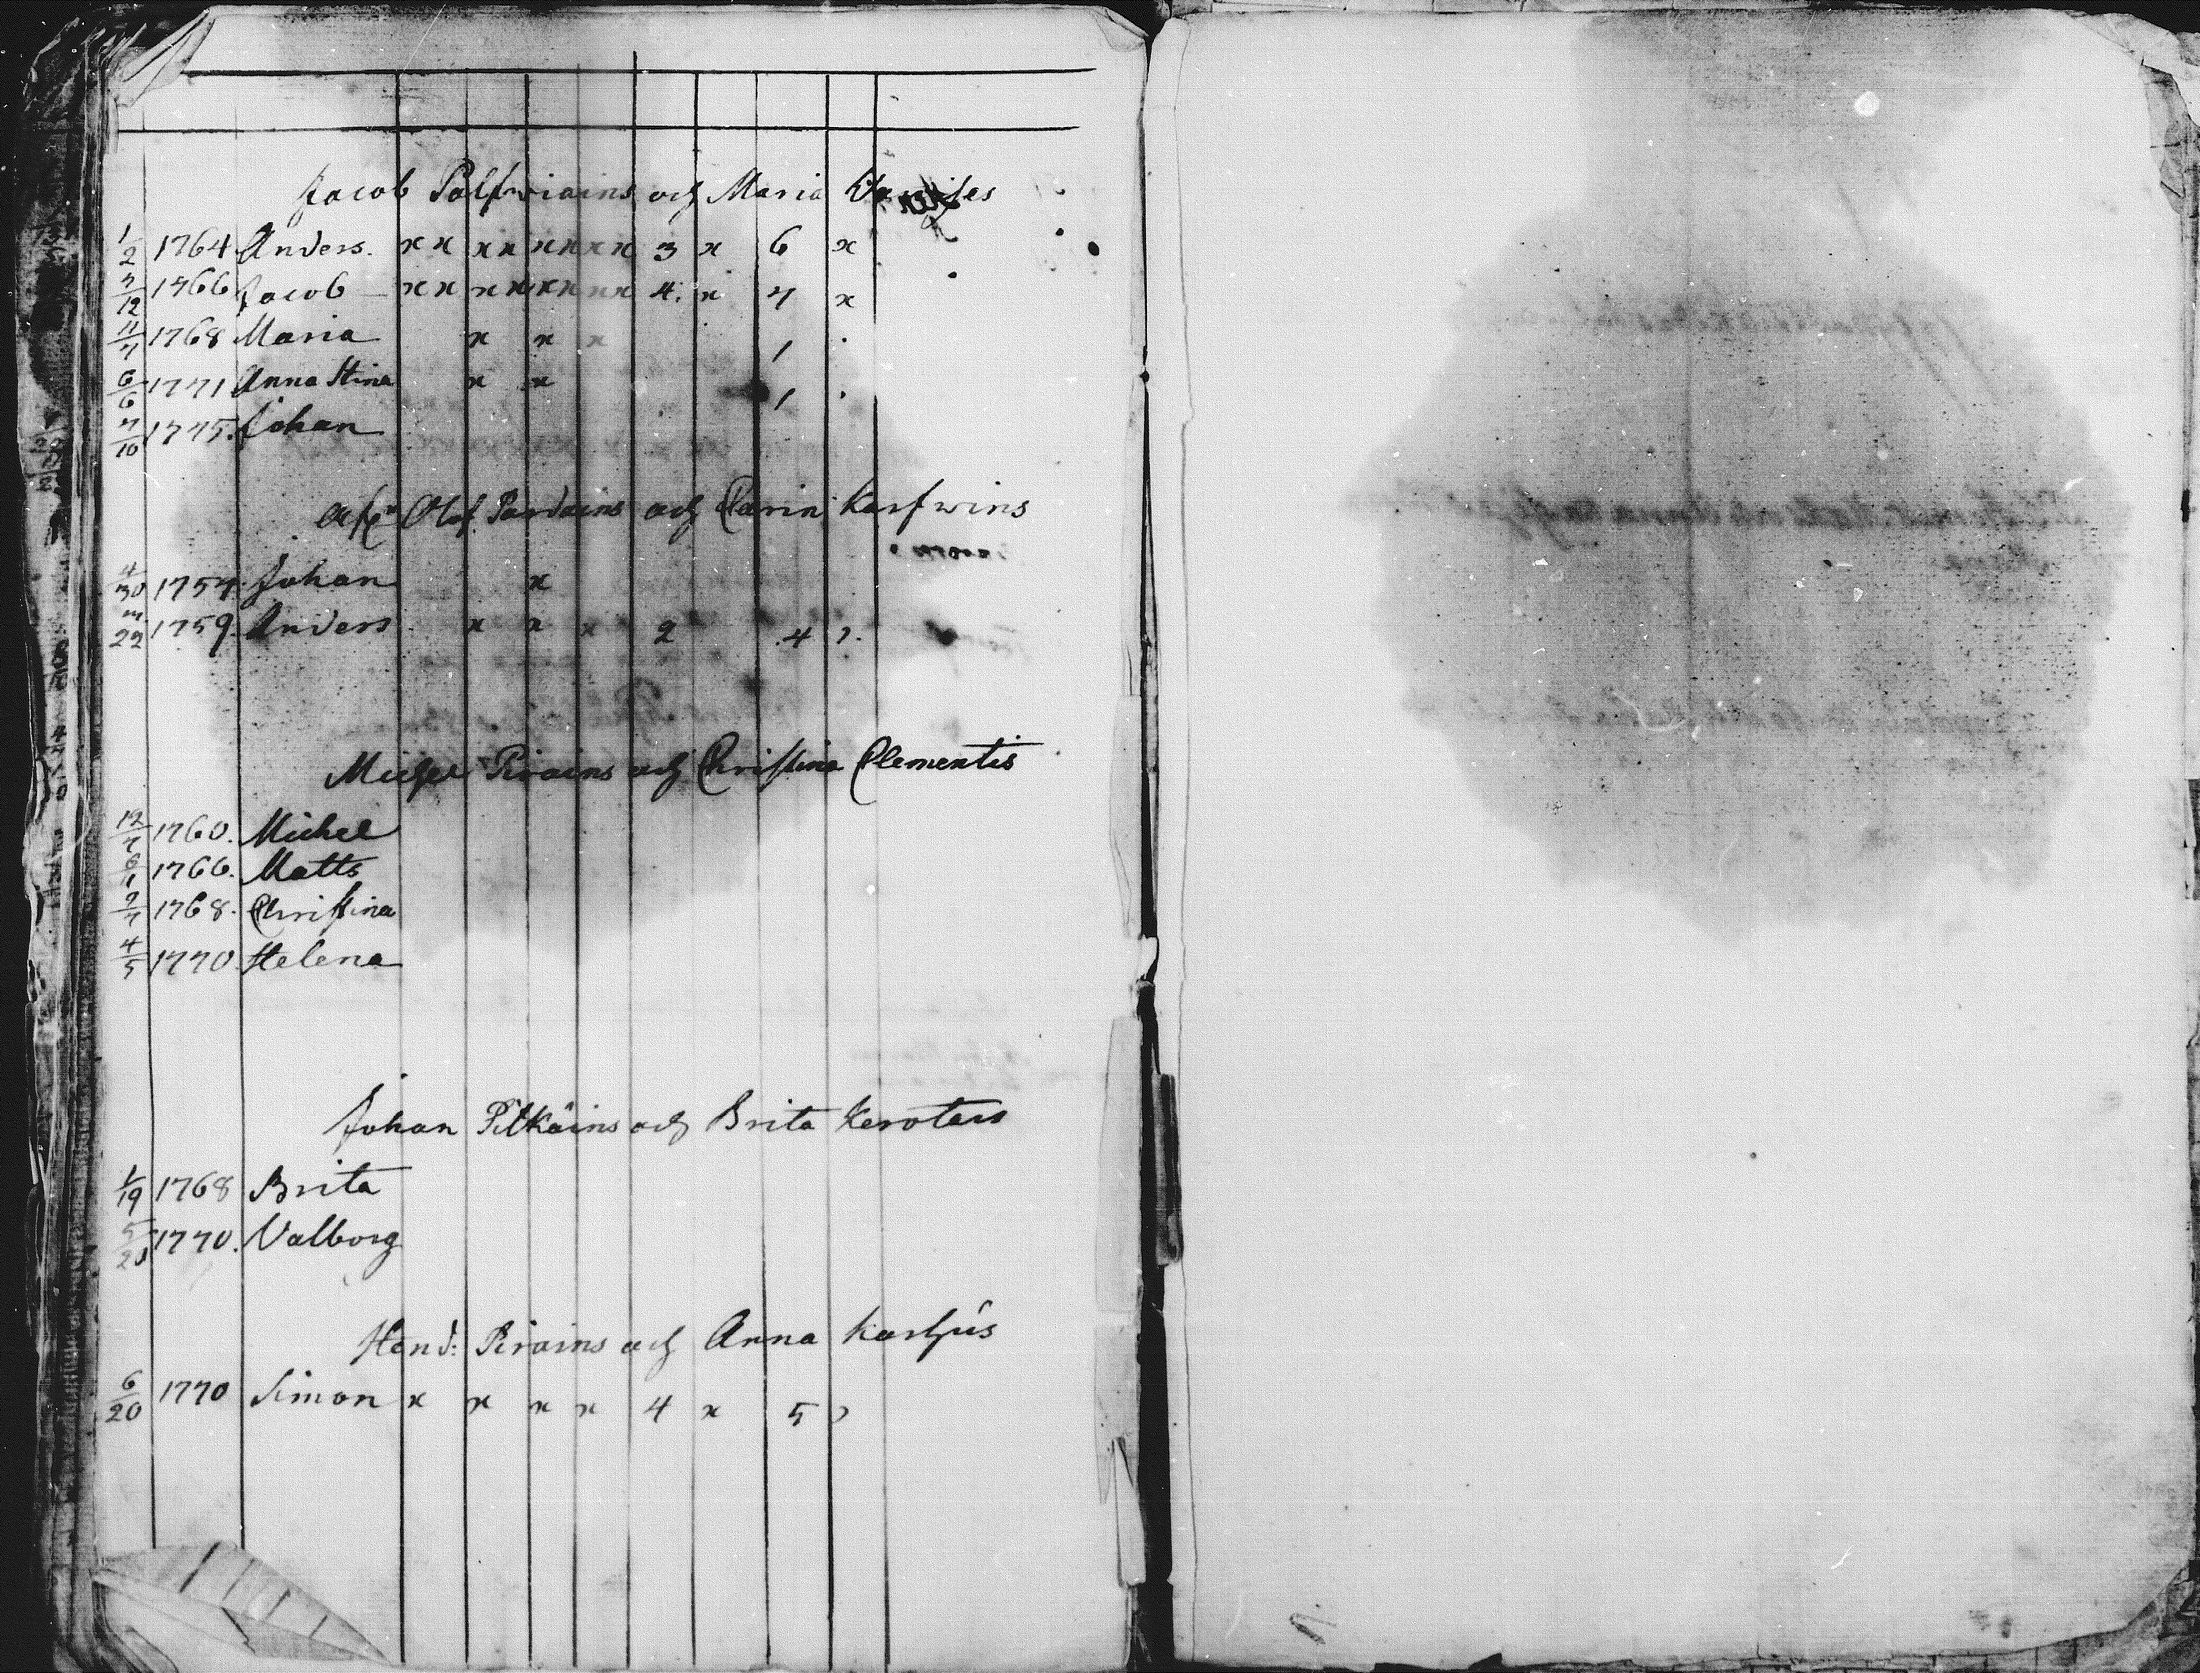 Jacob Palfwiains och Maria
1/2 1764 Anders. x x x x x x x x 3 x 6 x
7/12 1766 Jacob x x x x x x x x 4. x 7 x
11/7 1768 Maria x x x 1 .
6/6 1771 Anna Stina x x 1 .
7/10 1775. Johan
Olof Parvains och Carin Karfwins
4/30 1757. Johan x
1759. Anders x x x 2 4
Michel Pirains och Christina Clementis
12/7 1760. Michel
1766. Matts
2/7 1768. Christina
4/5 1770. Helena
Johan Pitkäins och Brita Kerotars
1/19 1768 Brita
1770. Valborg
Hend: Pirains och Anna Karhus
6/20 1770 Simon x x x x 4 x 5